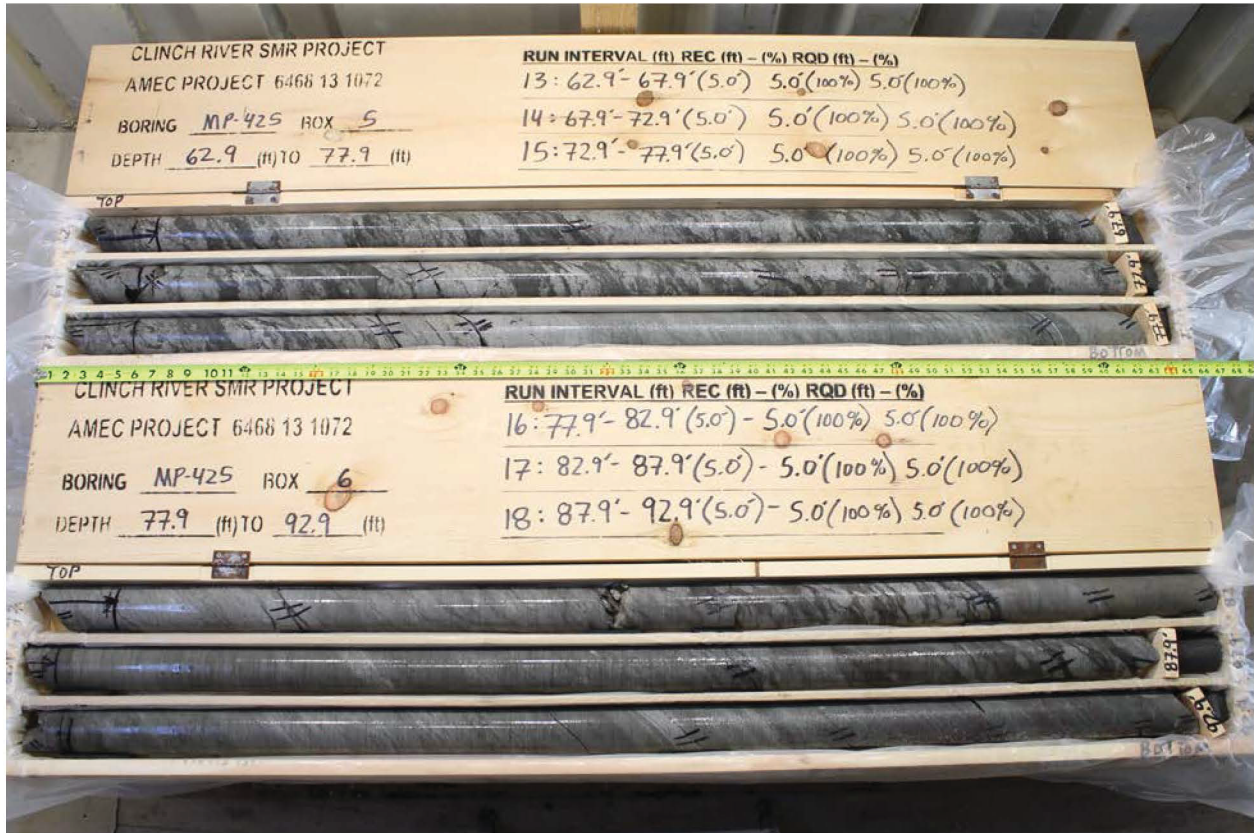 CLINCH RIVER SMR PROJECT
AMEC PROJECT 6468 13 1072
BORING MP-425 BOX 5
DEPTH 62.9 (ft) TO 77.9 (ft)
RUN INTERVAL (ft) REC (ft) – (%) RQD (ft) – (%)
13: 62.9'- 67.9' (5.0') 5.0' (100%) 5.0' (100%)
14: 67.9'- 72.9' (5.0') 5.0' (100%) 5.0' (100%)
15: 72.9'- 77.9' (5.0') 5.0' (100%) 5.0' (100%)
TOP
67.9'
77.9'
Bottom
1 2 3 4 5 6 7 8 9 10 11
CLINCH RIVER SMR PROJECT
AMEC PROJECT 6468 13 1072
BORING MP-425 BOX 6
DEPTH 77.9 (ft) TO 92.9 (ft)
RUN INTERVAL (ft) REC (ft) – (%) RQD (ft) – (%)
16: 77.9'- 82.9' (5.0') - 5.0' (100%) 5.0' (100%)
17: 82.9'- 87.9' (5.0') - 5.0' (100%) 5.0' (100%)
18: 87.9'- 92.9' (5.0') - 5.0' (100%) 5.0' (100%)
TOP
87.9'
92.9'
Bottom